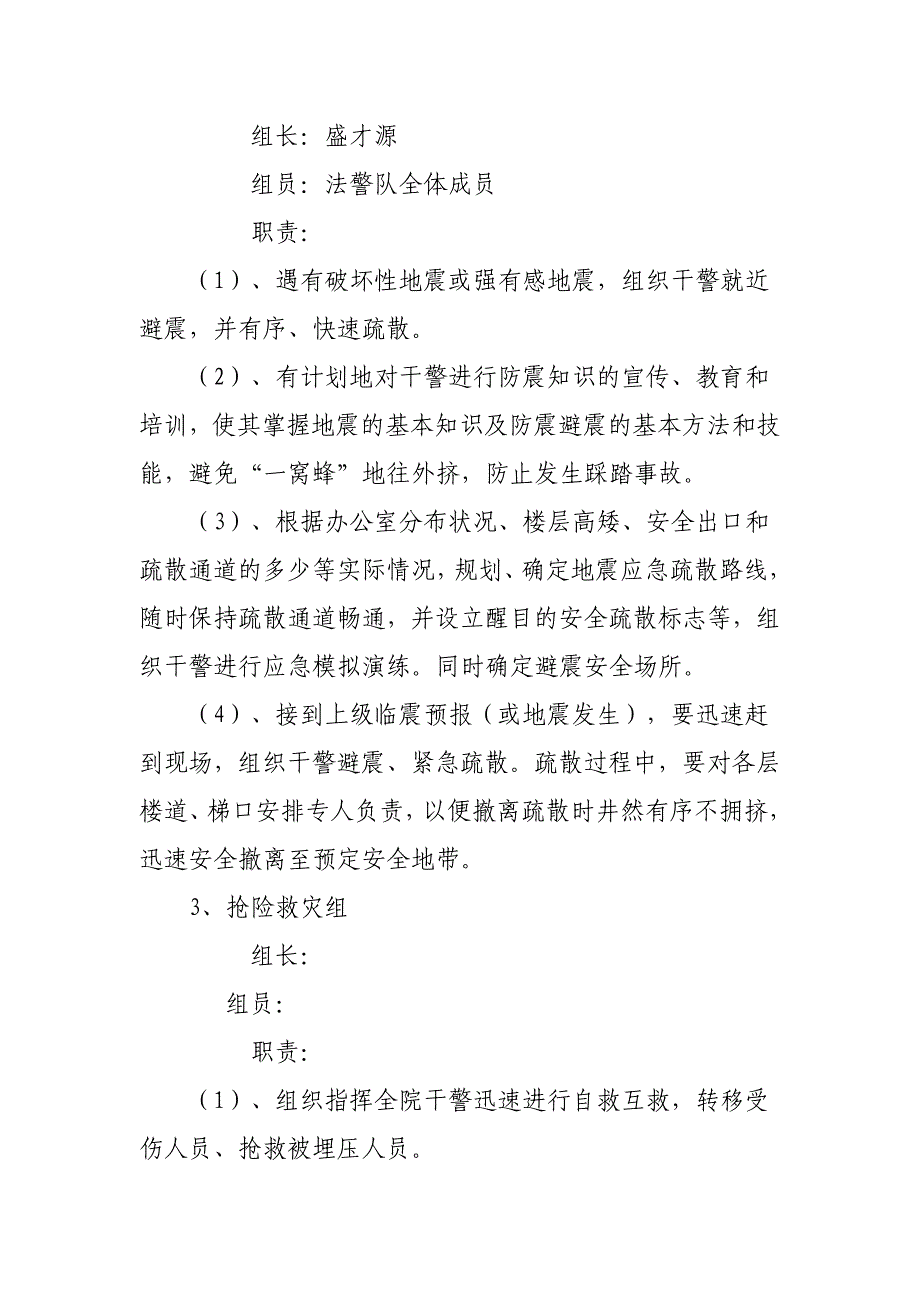 组长：盛才源
组员：法警队全体成员
职责：
（1）、遇有破坏性地震或强有感地震，组织干警就近
避震，并有序、快速疏散。
（2）、有计划地对干警进行防震知识的宣传、教育和
培训，使其掌握地震的基本知识及防震避震的基本方法和技
能，避免“一窝蜂”地往外挤，防止发生踩踏事故。
（3）、根据办公室分布状况、楼层高矮、安全出口和
疏散通道的多少等实际情况，规划、确定地震应急疏散路线，
随时保持疏散通道畅通，并设立醒目的安全疏散标志等，组
织干警进行应急模拟演练。同时确定避震安全场所。
（4）、接到上级临震预报（或地震发生），要迅速赶
到现场，组织干警避震、紧急疏散。疏散过程中，要对各层
楼道、梯口安排专人负责，以便撤离疏散时井然有序不拥挤，
迅速安全撤离至预定安全地带。
3、抢险救灾组
组长：
组员：
职责：
（1）、组织指挥全院干警迅速进行自救互救，转移受
伤人员、抢救被埋压人员。